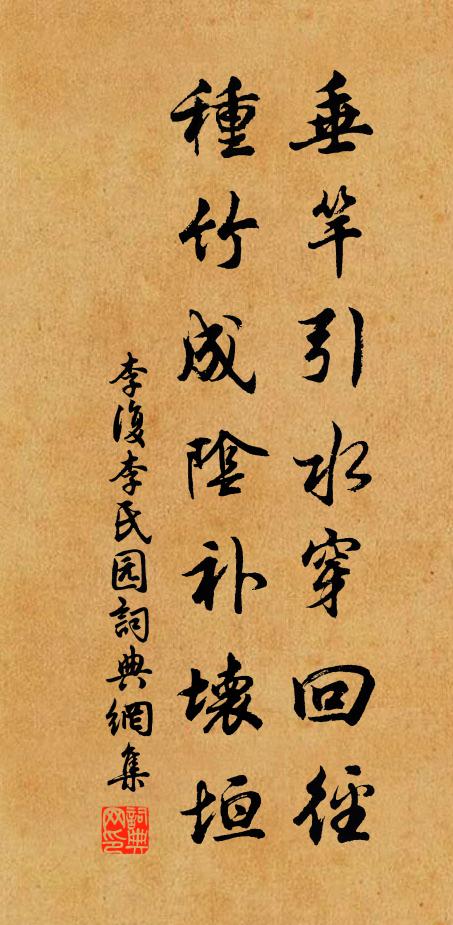 垂竿引水穿回徑
種竹成陰补壞垣
李復李氏园詞典網集
詞典网印